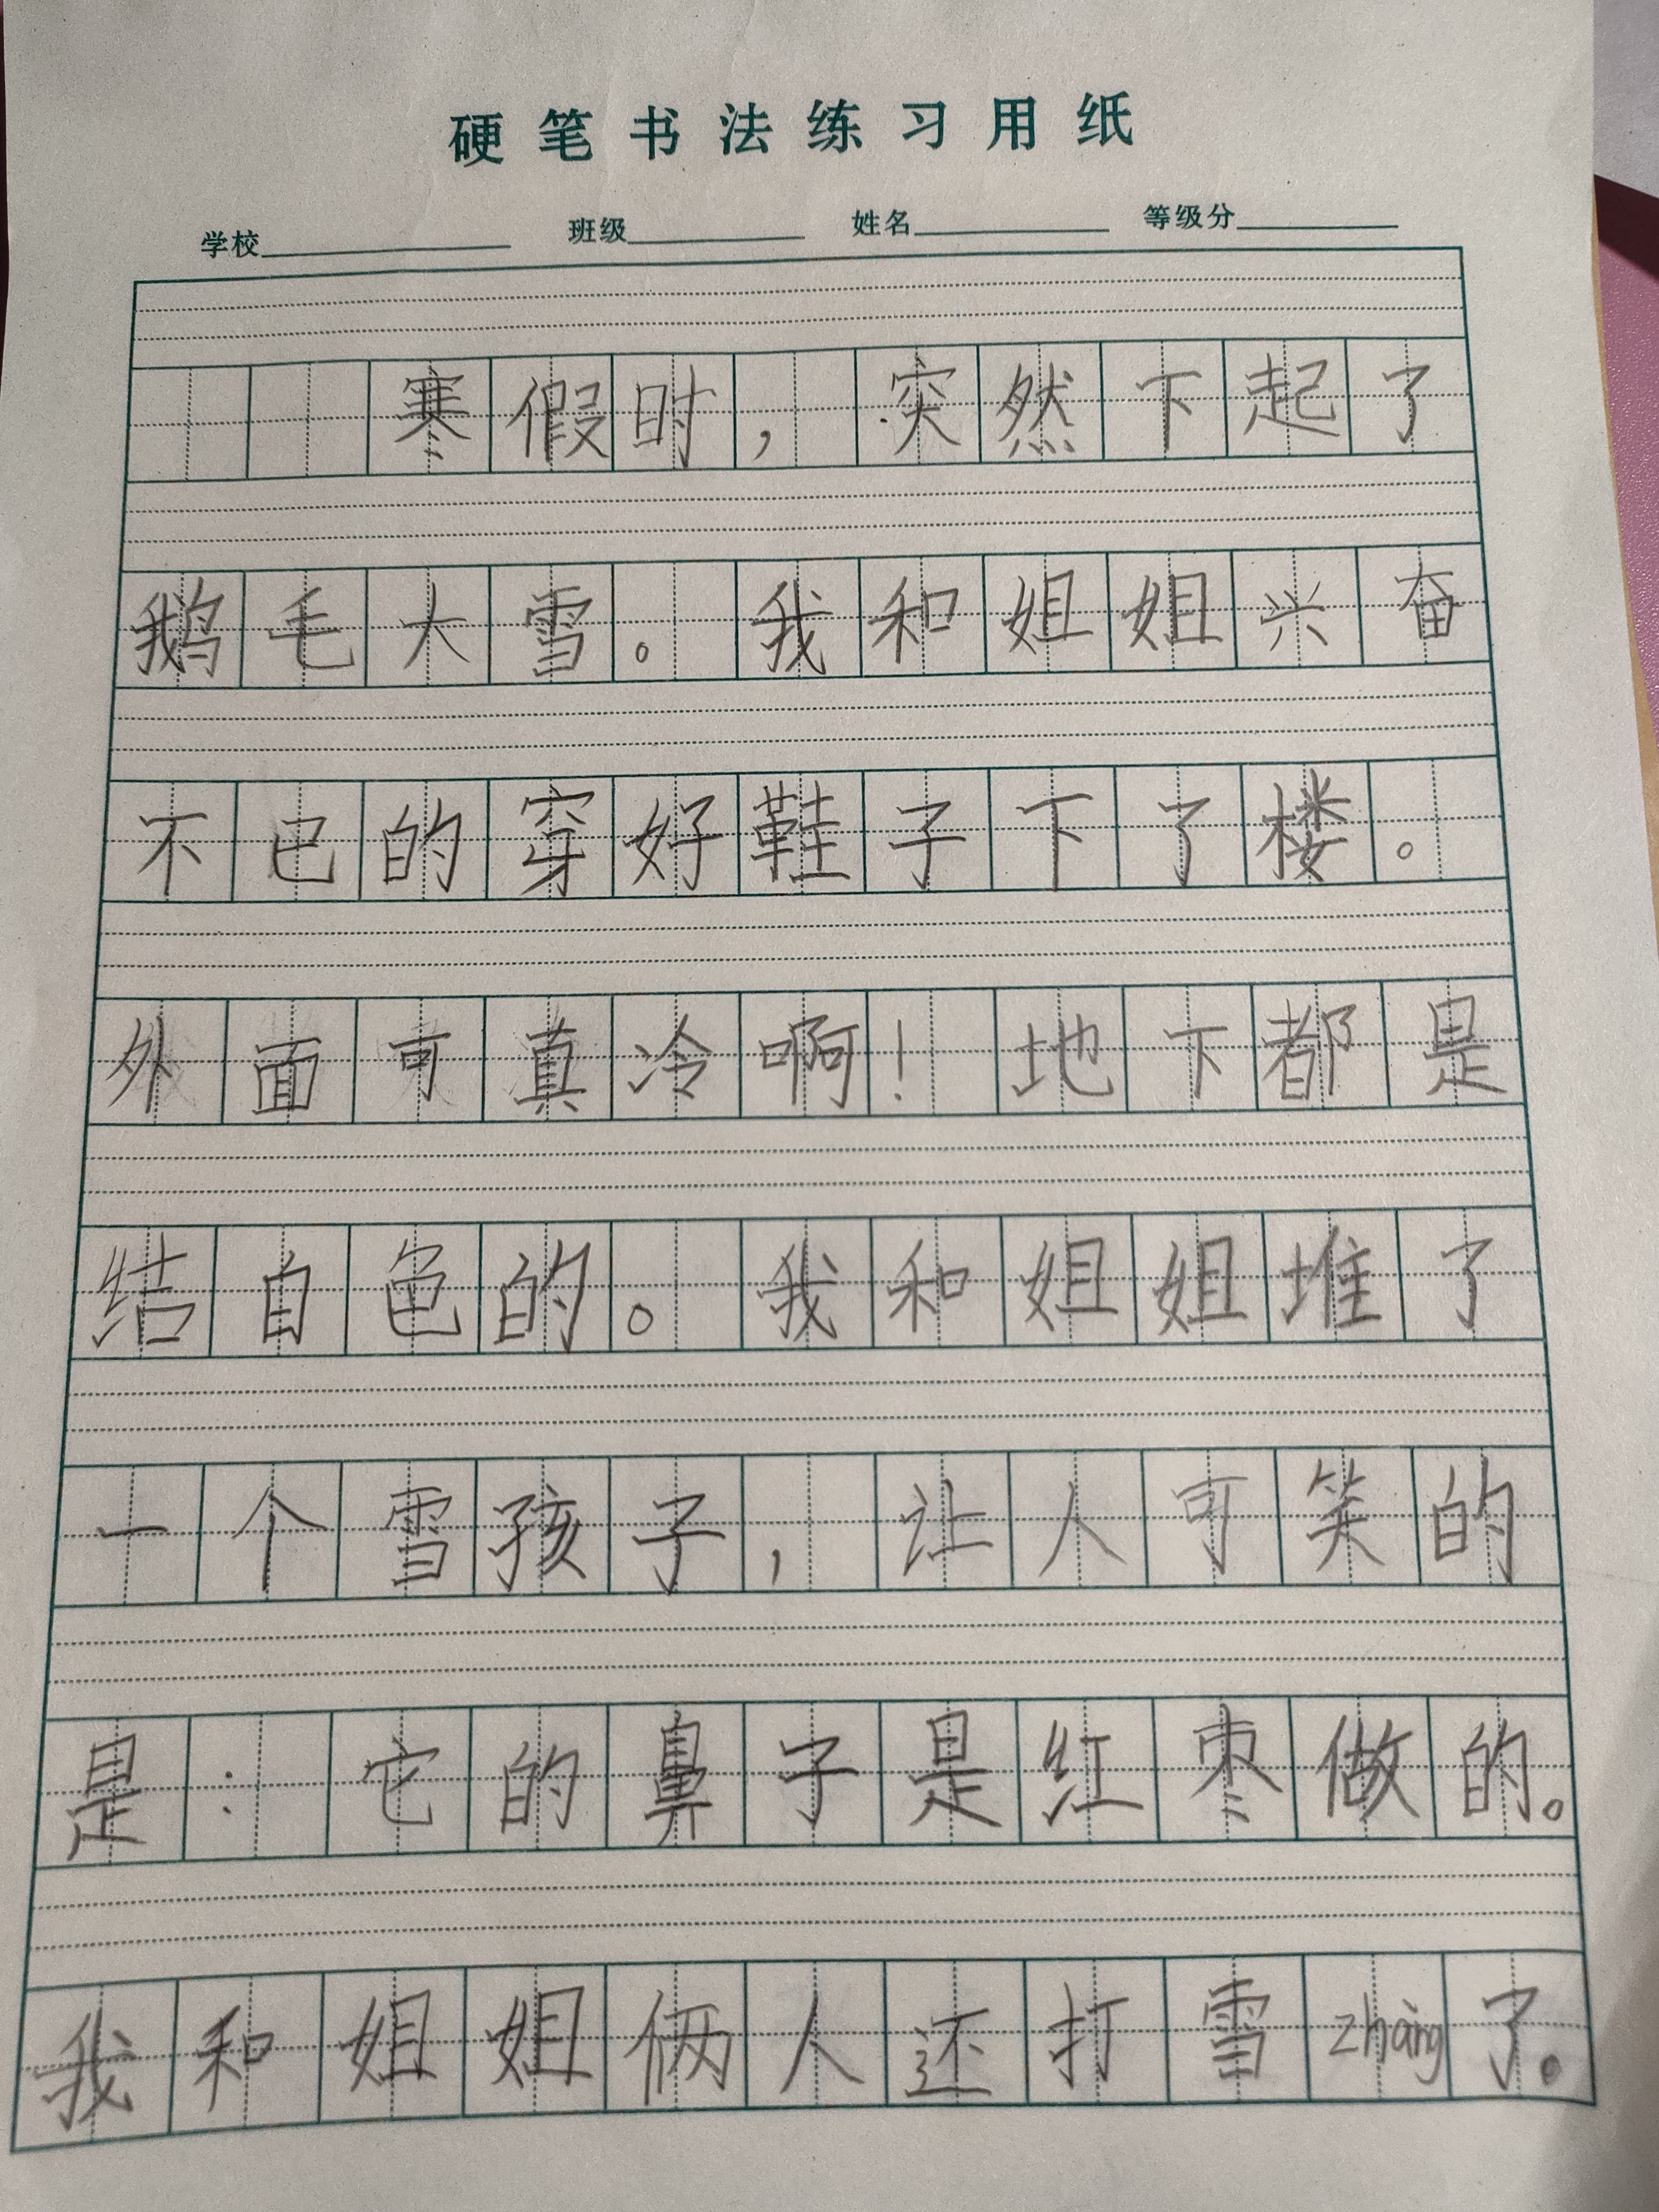 硬笔书法练习用纸
学校 班级 姓名 等级分
寒假时，突然下起了
鹅毛大雪。我和姐姐兴奋
不已的穿好鞋子下了楼。
外面可真冷啊！地下都是
结白色的。我和姐姐堆了
一个雪孩子，让人可笑的
是：它的鼻子是红枣做的。
我和姐姐俩人还打雪zhàng了。